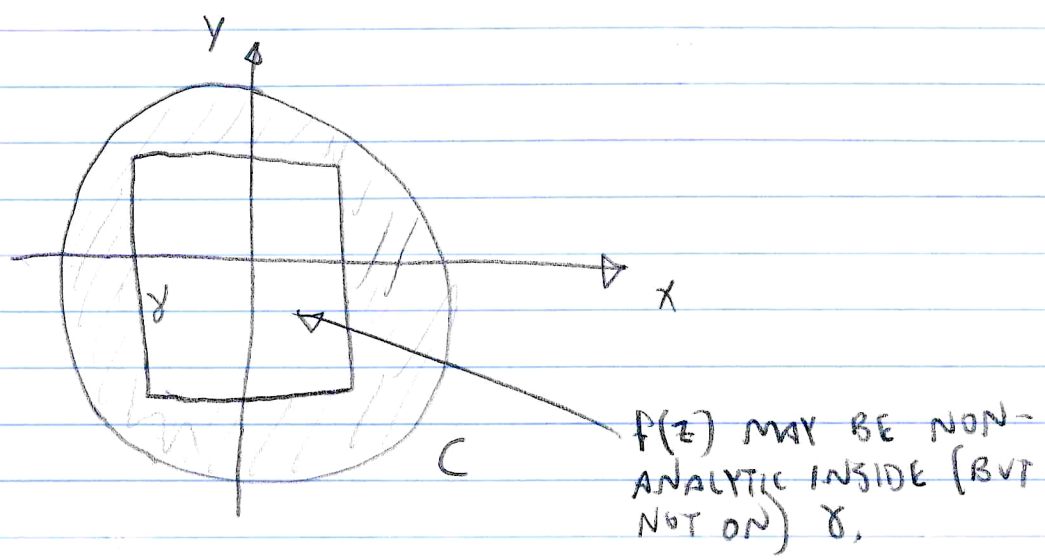 Y
X
γ
C
f(z) MAY BE NON-
ANALYTIC INSIDE (BUT
NOT ON) γ.